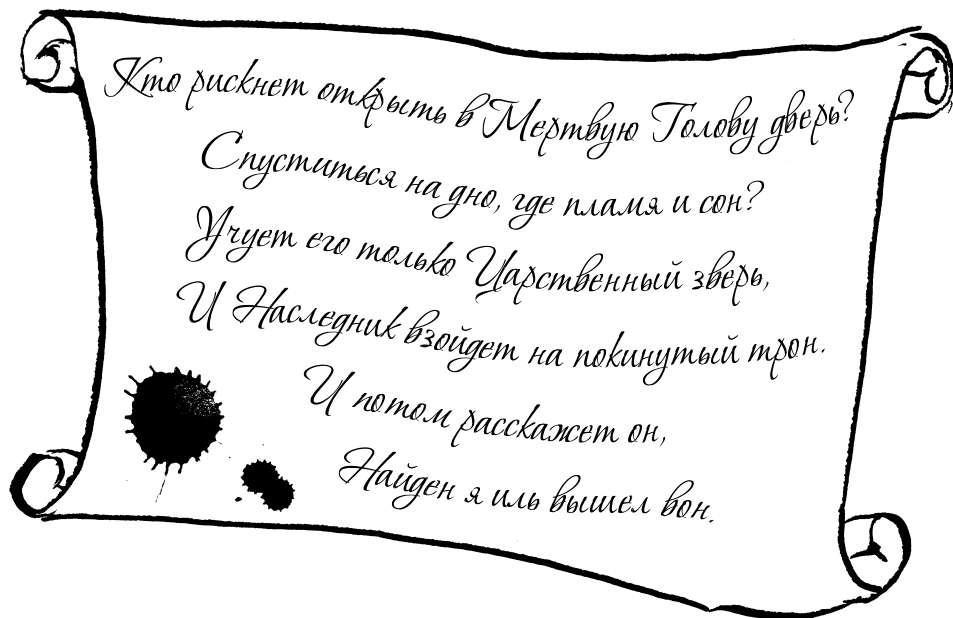 Кто рискнет открыть в Мертвую Голову дверь?
Спуститься на дно, где пламя и сон?
Учует его только Царственный зверь,
И Наследник взойдет на покинутый трон.
И потом расскажет он,
Найден я иль вышел вон.